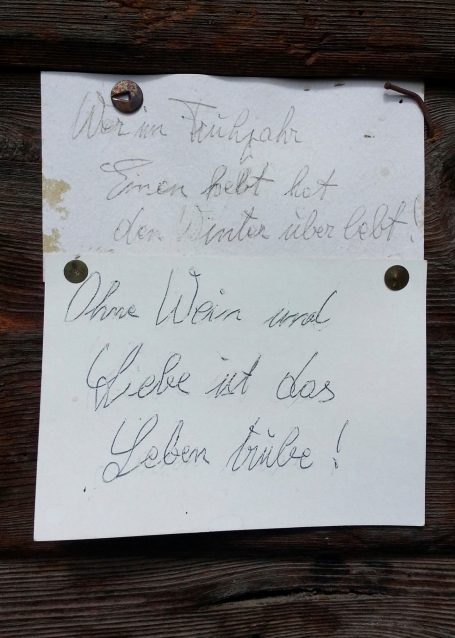 Wer im Frühjahr
Einen hebt hat
den Winter überlebt!
Ohne Wein und
Liebe ist das
Leben trübe!